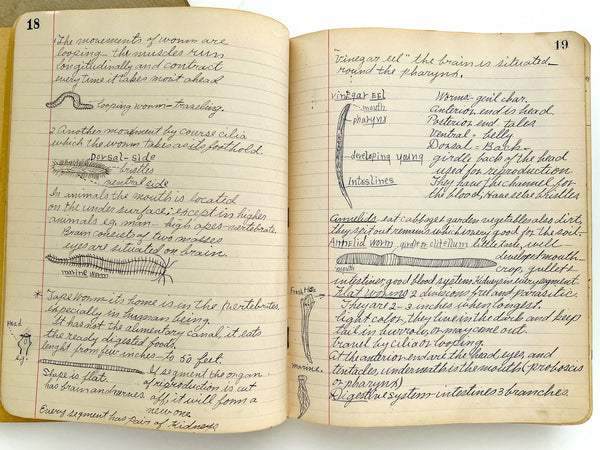 18
1 The movements of worm are
looping - the muscles run
longitudinally and contract
every time it takes most ahead
looping worm - traveling.
2 Another movement by course cilia
which the worm takes as its foothold.
Dorsal - side
bristles
ventral side
In animals the mouth is located
on the under surface; except in higher
animals ex. man - high apes - vertebrate.
Brain consists of two masses
eyes are situated on brain.
marine worm
* Tape worm its home is in the (vertebrates,
especially in human being.
It has not the alimentary canal, it eats
the ready digested foods,
lenght from few inches - to 50 feet.
Head
Shape is flat. If segment the organ
has brain and nerves of reproduction is cut
off it will form a
new one
Every segment has Pair of Kidneys
19
"Vinegar eel" the brain is situated
round the pharynx.
Vinegar EEl
mouth
pharynx
developing young
Intestines
Worms - gen'l char.
Anterior end is head
Posterior end tales
Ventral = belly
Dorsal = Back
girdle back of the head
used for reproduction
They have the channel for
the blood, Have setae bristles
Annelids eat cabbages garden vegetables also dirt,
they spit out remains which is very good for the soil.
Annelid worm girdle or clitellum little taste, well
developed mouth
mouth
crop, gullets
intestines, good blood system & kidneys in every segment.
Flat worms 2 divisions free and parasitic.
They are 2 - 3 inches when longest
light color, they live in the dark and keep
tail in burrow, or may come out.
travel by cilia or looping.
At the anterior end are the head, eyes and
tentacles, underneath is the mouth (proboscis
or pharynx)
Digestive system - intestines 3 branches.
marine